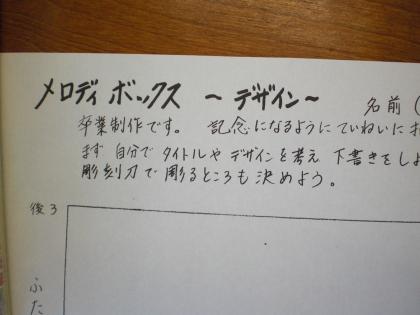 メロディボックス ～デザイン～ 名前(
卒業制作です。 記念になるようにていねいに
まず 自分で タイトルや デザインを考え 下書きをしよ
彫刻刀で彫るところも 決めよう。
後3
ふた